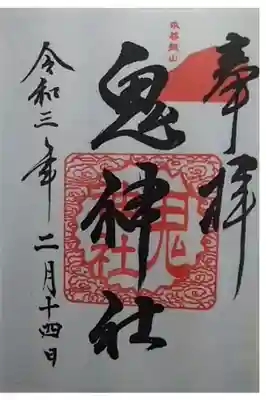 奉拝
鬼神社
鬼神社
令和三年二月十四日